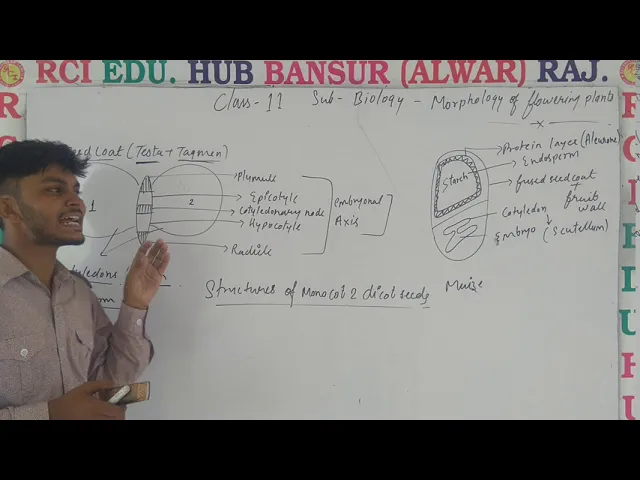 RCI EDU. HUB BANSUR (ALWAR) RAJ.
Class - 11 Sub - Biology - Morphology of flowering plants
Coat (Testa + Tagmen)
Plumule
Epicotyle
Cotyledonary node
Hypocotyle
Radicle
embryonal
Axis
1
2
Starch
Protein layer (Aleurone)
Endosperm
fused seed coat
+
fruit
wall
Cotyledon
Embryo (Scutellum)
Structures of Monocot 2 dicot seeds
Maize